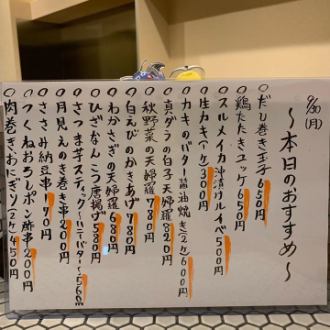 9/30(月)
〜本日のおすすめ〜
だし巻き玉子650円
鶏たたきユッケ650円
スルメイカ沖漬けルイベ500円
生カキ(1ケ)300円
カキのバター醤油焼き(2ケ)600円
真ダラの白子天婦羅820円
秋野菜の天婦羅780円
白えびのかきあげ780円
わかさぎの天婦羅680円
ひざなんこつ唐揚げ580円
さつま芋スティック〜ハニーバター〜560円
月見えのき巻き串200円
ささみ納豆串190円
つくねおろしポン酢串200円
肉巻きおにぎり(2ケ)450円